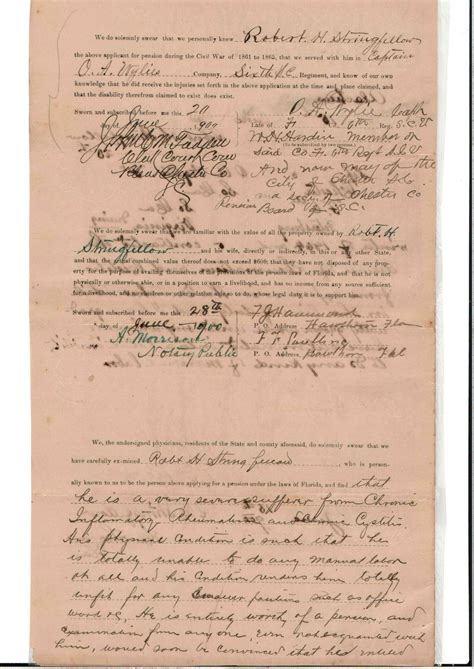 We do solemnly swear that we personally know Robert H. Stringfellow
the above applicant for pension during the Civil War of 1861 to 1865, that we served with him in Captain
O. A. Wylies Company, Sixth S.C. Regiment, and know of our own
knowledge that he did receive the injuries set forth in the above application at the time and place claimed, and
that the disability therefrom claimed to exist does exist.
Sworn and subscribed before me this 20
day of June 1900
O. A. Wylie Capt
Late of F. 6th Reg. S.C.V.
J. W. McFadden
Clerk Court Com
Pleas Chester Co
S.C.
W. H. Hardin member of
(To be subscribed by two persons)
said Co. F. 6th Regt S.C.V
And now may of the
City of Chester S.C.
Chester Co
Pension Board of S.C.
We do solemnly swear that we are familiar with the value of all the property owned by Robt. H.
Stringfellow and his wife, directly or indirectly, in this or any other State,
and that the combined value thereof does not exceed $600; that they have not disposed of any prop-
erty for the purpose of availing themselves of the provisions of the pension laws of Florida, and that he is not
physically or otherwise able, or in a position to earn a livelihood, and has no income from any source sufficient
for a livelihood, and no sons or other relatives able so to do, whose legal duty it is to support him.
Sworn and subscribed before me this 28th
day of June 1900
A. Morrison
Notary Public
F. J. Hammond
P. O. Address Hawthorn Fla
P. O. Address Hawthorn Fla
We, the under-signed physicians, residents of the State and county aforesaid, do solemnly swear that
we have carefully examined Robt H Stringfellow who is person-
ally known to us to be the person above applying for a pension under the laws of Florida, and find that
he is a very severe sufferer from Chronic
Inflamatory Rheumatism and Chronic Cystitis
His physical condition is such that he
is totally unable to do any manual labor
at all and his condition renders him totally
unfit for any position such as office
work &c, He is entirely worthy of a pension, and
examination from any one, even not acquainted with
him, would soon be convinced that he is